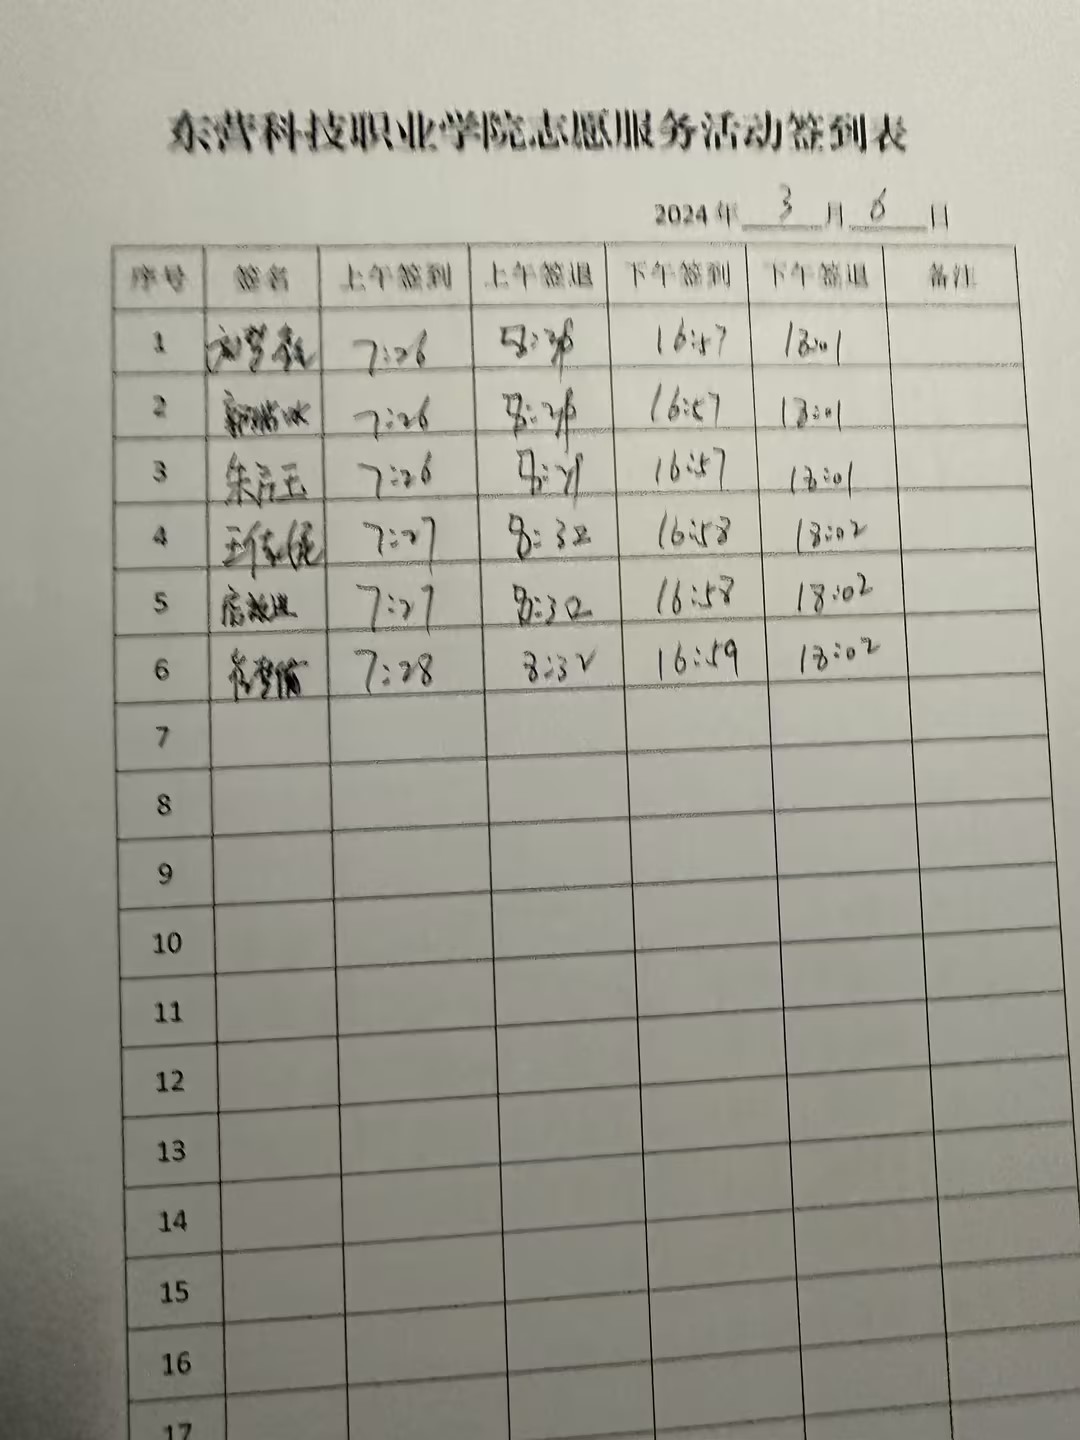 东营科技职业学院志愿服务活动签到表
2024 年 3 月 6 日
序号 签名 上午签到 上午签退 下午签到 下午签退 备注
1 7:26 16:57 18:01
2 7:26 16:57 18:01
3 朱启玉 7:26 16:57 18:01
4 7:27 8:32 16:58 18:02
5 7:27 8:32 16:58 18:02
6 7:28 8:32 16:59 18:02
7
8
9
10
11
12
13
14
15
16
17